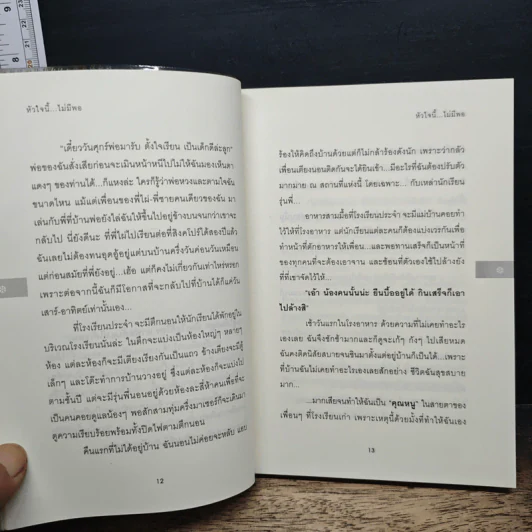 หัวใจนี้...ไม่มีพอ
"เดี๋ยววันศุกร์พ่อมารับ ตั้งใจเรียน เป็นเด็กดีล่ะลูก"
พ่อของฉันสั่งเสียก่อนจะเมินหน้าหนีไปไม่ให้ฉันมองเห็นตา
แดงๆ ของท่านได้...ก็แหงล่ะ ใครก็รู้ว่าพ่อหวงและตามใจฉัน
ขนาดไหน แม้แต่เพื่อนของพี่ไผ่-พี่ชายคนเดียวของฉัน มา
เล่นกับพี่ที่บ้านพ่อยังไล่ฉันให้ขึ้นไปอยู่ข้างบนจนกว่าเขาจะ
กลับไป นี่ยังดีนะ ที่พี่ไม่ไปเรียนต่อที่สิงคโปร์ได้สองปีแล้ว
ฉันเลยไม่ต้องทนอุดอู้อยู่แต่บนบ้านครึ่งค่อนวันเหมือน
แต่ก่อนสมัยที่พี่ยังอยู่...เฮ้อ แต่ก็คงไม่เกี่ยวกันเท่าไหร่หรอก
เพราะต่อจากนี้ฉันก็มีโอกาสที่จะกลับไปที่บ้านได้ก็แค่วัน
เสาร์-อาทิตย์เท่านั้นเอง...
ที่โรงเรียนประจำ จะมีตึกนอนให้นักเรียนได้พักอยู่ใน
บริเวณโรงเรียนนั่นล่ะ ในตึกจะแบ่งเป็นห้องใหญ่ๆ หลายๆ
ห้อง แต่ละห้องก็จะมีเตียงเรียงกันเป็นแถว ข้างเตียงจะมีตู้
เล็กๆ และโต๊ะทำการบ้านวางอยู่ ซึ่งแต่ละห้องก็จะแบ่งไป
ตามชั้นปี แต่จะมีรุ่นพี่นอนอยู่ด้วยห้องละสี่ห้าคนเพื่อที่จะ
เป็นคนคอยดูแลน้องๆ พอสักสามทุ่มครึ่งมาเซอร์ก็จะเดินมา
ดูความเรียบร้อยพร้อมทั้งปิดไฟตามตึกนอน
คืนแรกที่ไม่ได้อยู่บ้าน ฉันนอนไม่ค่อยจะหลับ แอบ
12
หัวใจนี้...ไม่มีพอ
ร้องไห้คิดถึงบ้านด้วยแต่ก็ไม่กล้าร้องดังนัก เพราะว่ากลัว
เพื่อนเตียงนอนติดกันจะได้ยินเข้า...มีอะไรที่ฉันต้องปรับตัว
มากมาย ณ สถานที่แห่งนี้ โดยเฉพาะ... กับเหล่านักเรียน
รุ่นพี่...
อาหารสามมื้อที่โรงเรียนประจำ จะมีแม่บ้านคอยทำ
ไว้ให้ที่โรงอาหาร แต่นักเรียนแต่ละคนก็ต้องแบ่งเวรกันเพื่อ
ทำหน้าที่ตักอาหารให้เพื่อน...และพอทานเสร็จก็เป็นหน้าที่
ของทุกคนที่จะต้องเอาจาน และช้อนที่ตัวเองใช้ไปล้างยัง
ที่ที่เขาจัดไว้ให้...
"เอ้า น้องคนนั้นน่ะ ยืนบื้ออยู่ได้ กินเสร็จก็เอา
ไปล้างสิ"
เช้าวันแรกในโรงอาหาร ด้วยความที่ไม่เคยทำอะไร
เองเลย ฉันจึงชักช้ามากและก็ดูจะเก้ๆ กังๆ ไปเสียหมด
ฉันคงติดนิสัยสบายจนชินมาตั้งแต่อยู่บ้านก็เป็นได้...เพราะ
ที่บ้านฉันไม่เคยทำอะไรเองเลยสักอย่าง ชีวิตฉันสุขสบาย
มาก...
...มากเสียจนทำให้ฉันเป็น "คุณหนู" ในสายตาของ
เพื่อนๆ ที่โรงเรียนเก่า เพราะเหตุนี้ด้วยมั้งที่ทำให้ฉันเอง
13